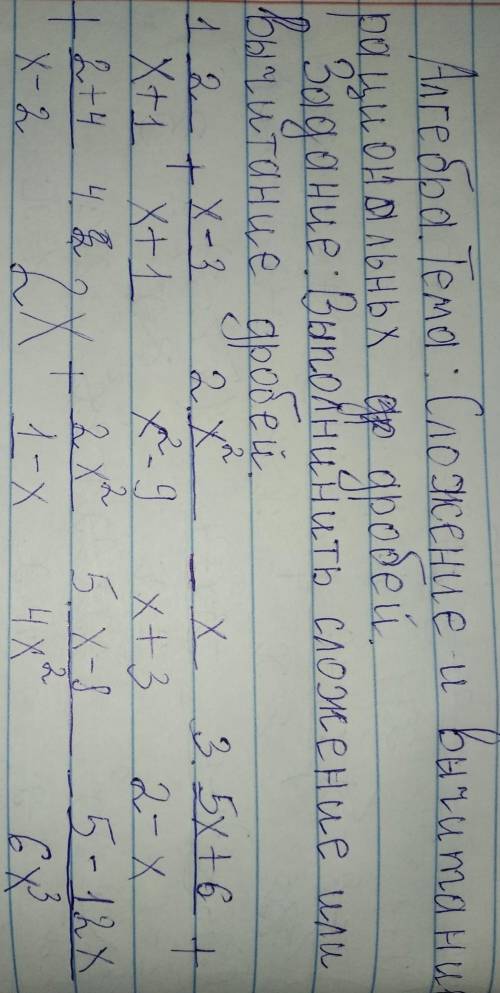 Алгебра. Тема: Сложение и вычитани
рациональных др дробей.
Задание: Выполнинить сложение или
вычитание дробей.
1 2/(x+1) + (x-3)/(x+1) 2. x²/(x²-9) - x/(x+3) 3. (5x+6)/(2-x) +
+ (2+4)/(x-2) 4. 2x + 2x²/(1-x) 5. (x-8)/(4x²) - (5-12x)/(6x³)